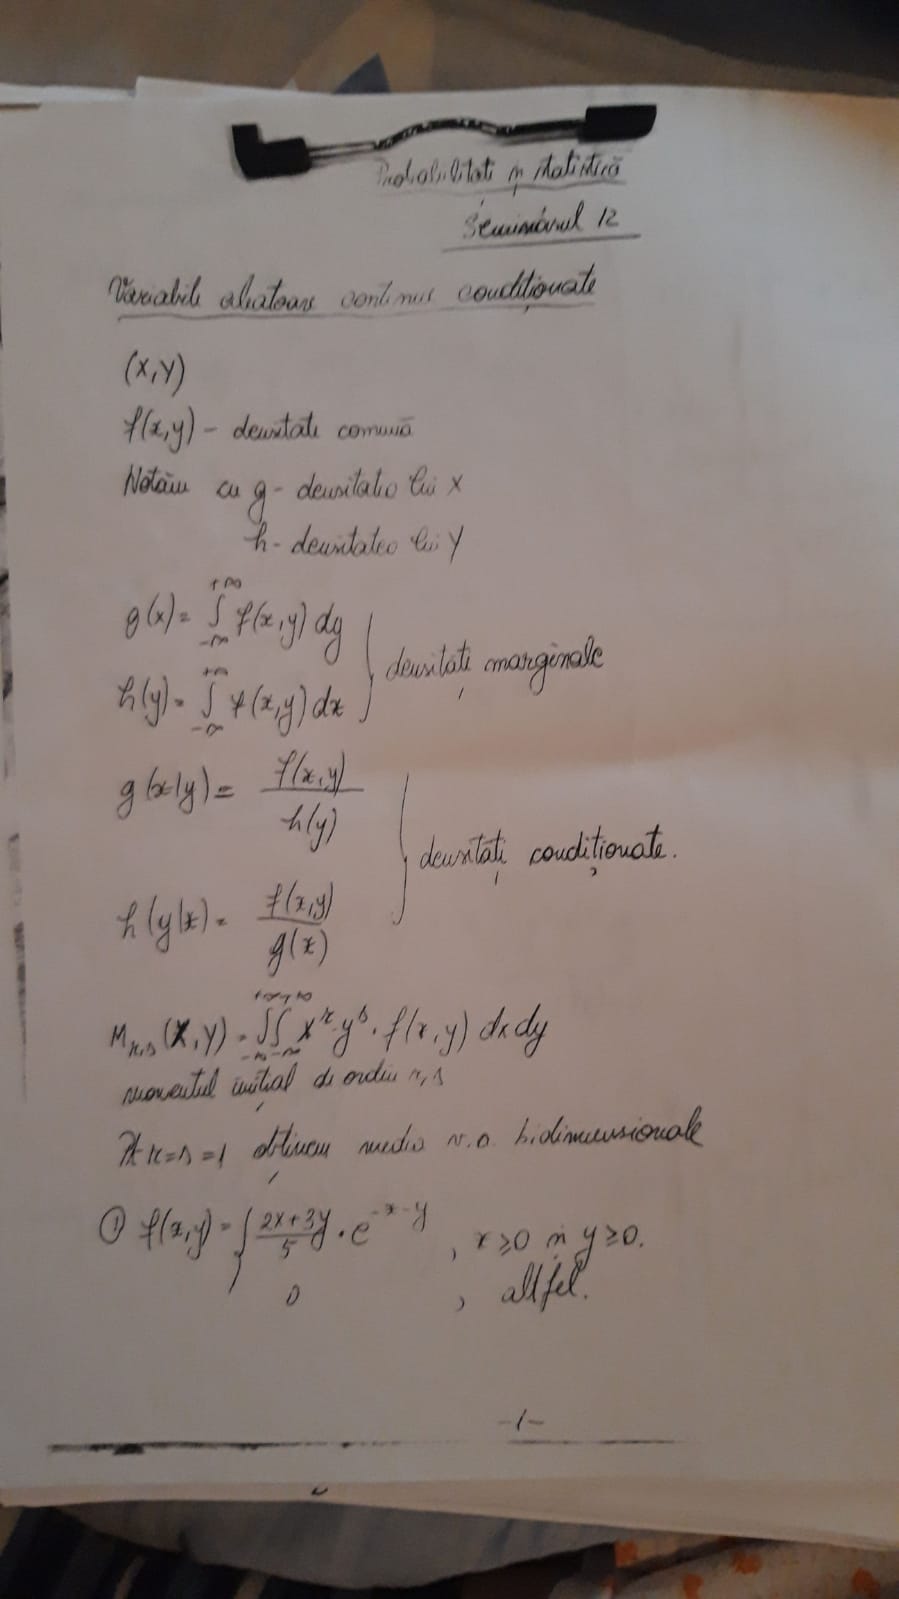 Probabilități și statistică
Seminarul 12
Variabile aleatoare continue condiționate
(X,Y)
f(x,y) - densitate comună
Notăm cu g - densitatea lui X
h - densitatea lui Y
g(x) = ∫_{-∞}^{+∞} f(x,y) dy
h(y) = ∫_{-∞}^{+∞} f(x,y) dx } densități marginale
g(x|y) = f(x,y) / h(y)
h(y|x) = f(x,y) / g(x) } densități condiționate.
M_{r,s}(X,Y) = ∫_{-∞}^{+∞}∫_{-∞}^{+∞} x^r y^s · f(x,y) dx dy
momentul inițial de ordin r,s
Pt r=s=1 obținem media v.a. bidimensionale
① f(x,y) = { (2x+3y)/5 · e^{-x-y} , x≥0 și y≥0.
0 , altfel.
-1-